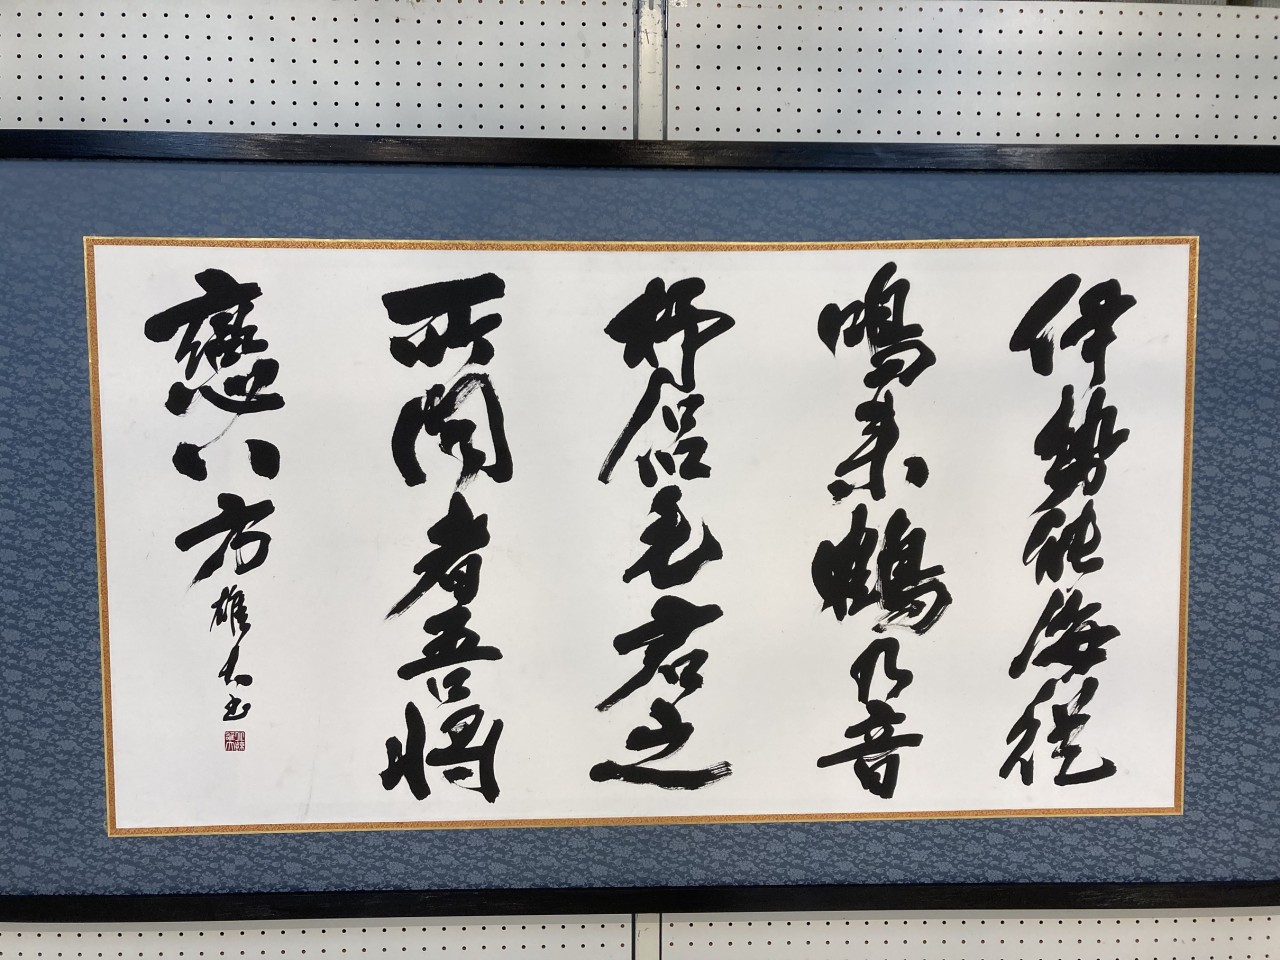 伊勢能海従
鳴来鶴乃音
杼侶毛君之
所聞者吾将
戀八方
雄大書